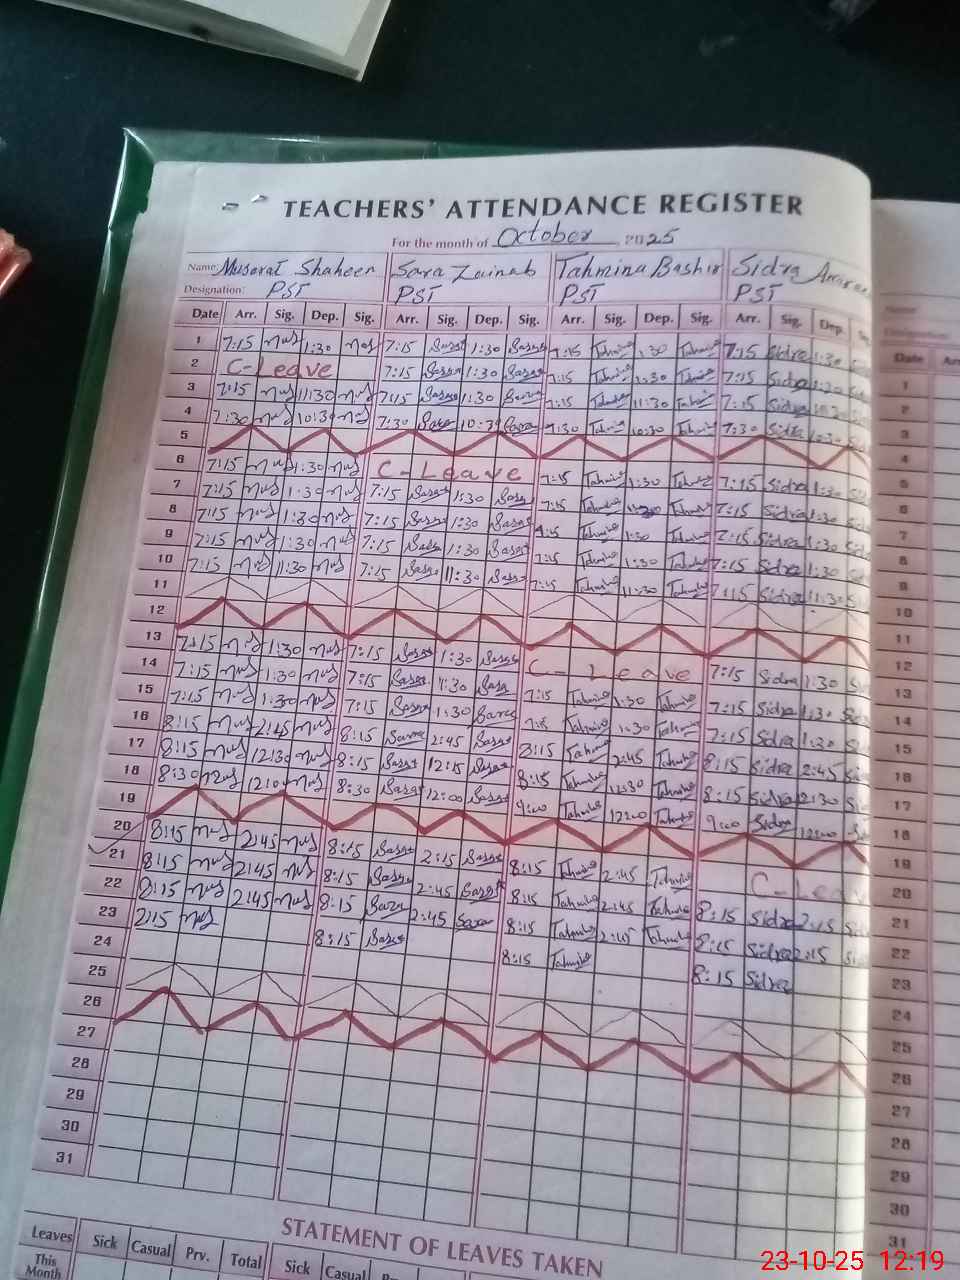 TEACHERS' ATTENDANCE REGISTER
For the month of October, 2025
Name: Musarat Shaheen Sara Zainab Tahmina Bashir Sidra
Designation: PST PST PST PST
Date Arr. Sig. Dep. Sig. Arr. Sig. Dep. Sig. Arr. Sig. Dep. Sig. Arr. Sig. Dep.
1 7:15 Mus 1:30 Mus 7:15 Sara 1:30 Sara 7:15 Tahmina 1:30 Tahmina 7:15 Sidra 1:30
2 C-Leave 7:15 Sara 1:30 Sara 7:15 Tahmina 1:30 Tahmina 7:15 Sidra 1:30
3 7:15 Mus 11:30 Mus 7:15 Sara 11:30 Sara 7:15 Tahmina 11:30 Tahmina 7:15 Sidra
4 7:30 Mus 10:30 Mus 7:30 Sara 10:30 Sara 7:30 Tahmina 10:30 Tahmina 7:30 Sidra 10:30
5
6 7:15 Mus 1:30 Mus C-Leave 7:15 Tahmina 1:30 Tahmina 7:15 Sidra 1:30
7 7:15 Mus 1:30 Mus 7:15 Sara 1:30 Sara 7:15 Tahmina Tahmina 7:15 Sidra 1:30
8 7:15 Mus 1:30 Mus 7:15 Sara 1:30 Sara Tahmina 1:30 Tahmina 7:15 Sidra 1:30
9 7:15 Mus 1:30 Mus 7:15 Sara 1:30 Sara 7:15 Tahmina 1:30 Tahmina 7:15 Sidra 1:30
10 7:15 Mus 11:30 Mus 7:15 Sara 11:30 Sara 7:15 Tahmina 11:30 Tahmina 7:15 Sidra 11:30
11
12
13 7:15 Mus 1:30 Mus 7:15 Sara 1:30 Sara C-Leave 7:15 Sidra 1:30
14 7:15 Mus 1:30 Mus 7:15 Sara 1:30 Sara 7:15 Tahmina 1:30 Tahmina 7:15 Sidra 1:30
15 7:15 Mus 1:30 Mus 7:15 Sara 1:30 Sara 7:15 Tahmina 1:30 Tahmina 7:15 Sidra 1:30
16 8:15 Mus 2:45 Mus 8:15 Sara 2:45 Sara 8:15 Tahmina 2:45 Tahmina 8:15 Sidra 2:45
17 8:15 Mus 12:30 Mus 8:15 Sara 12:15 Sara 8:15 Tahmina 12:30 Tahmina 8:15 Sidra 12:30
18 8:30 Mus 12:0 Mus 8:30 Sara 12:00 Sara 9:00 Tahmina 12:00 Tahmina 9:00 Sidra 12:00
19
20 8:15 Mus 2:45 Mus 8:15 Sara 2:15 Sara 8:15 Tahmina 2:45 Tahmina C-Leav
21 8:15 Mus 2:45 Mus 8:15 Sara 2:45 Sara 8:15 Tahmina 2:45 Tahmina 8:15 Sidra 2:15
22 8:15 Mus 2:45 Mus 8:15 Sara 2:45 Sara 8:15 Tahmina 2:45 Tahmina 8:15 Sidra 2:15
23 Mus 8:15 Sara 8:15 Tahmina 8:15 Sidra
24
25
26
27
28
29
30
31
STATEMENT OF LEAVES TAKEN
Leaves Sick Casual Prv. Total Sick Casual
This Month
Date
1
2
3
4
5
6
7
8
9
10
11
12
13
14
15
16
17
18
19
20
21
22
23
24
25
26
27
28
29
30
31
23-10-25 12:19